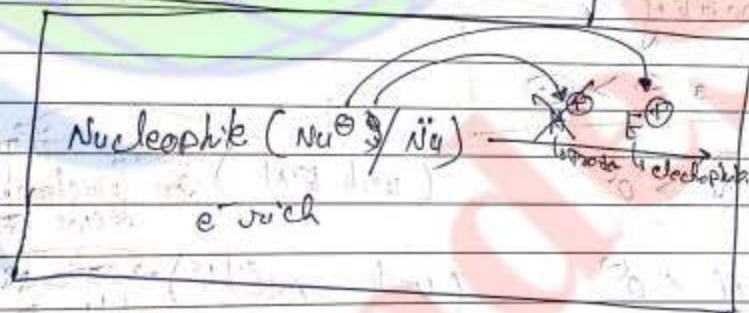 Nucleophile (Nu⊖ / N̈u) ⊕ E⊕
electrophile
e⁻ rich